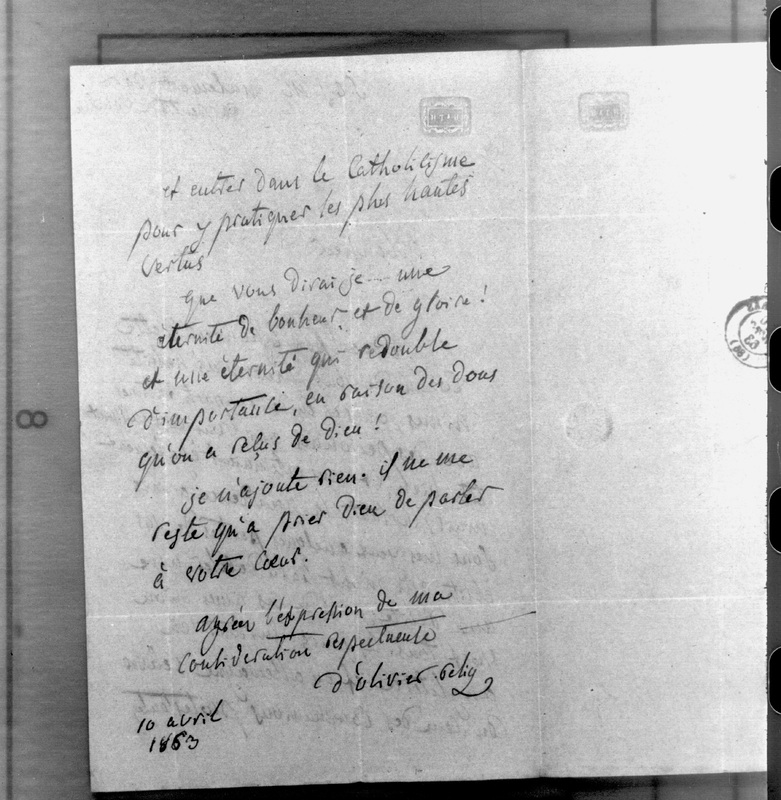 et entrer dans le Catholicisme
pour y pratiquer les plus hautes
vertus
que vous dirai-je... une
eternité de bonheur et de gloire!
et une éternité qui redouble
d'importance, en raison des dons
qu'on a reçus de Dieu!
je n'ajoute rien. il ne me
reste qu'a prier Dieu de parler
à votre cœur.
agréez l'expression de ma
consideration respectueuse
d'olivier relig
10 avril
1863
8